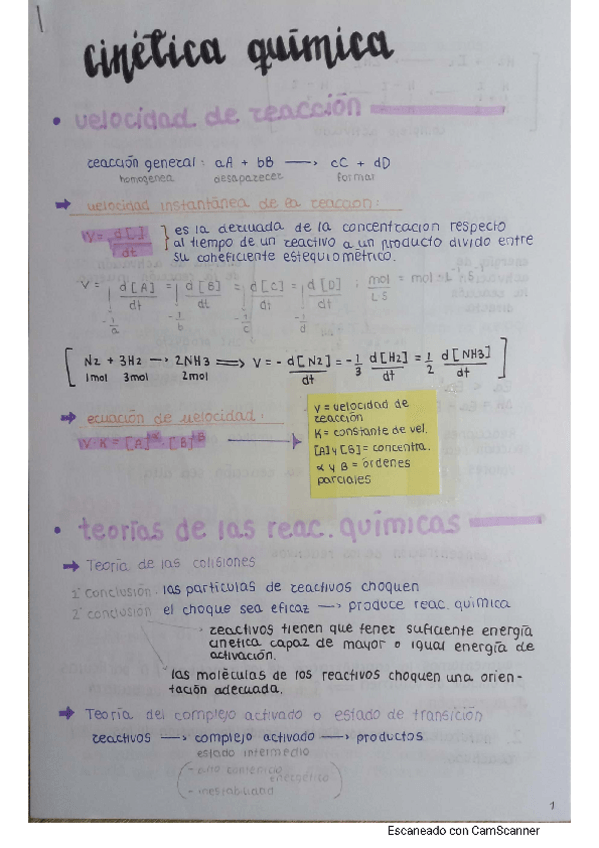 1
cinética química
• velocidad de reacción
reacción general: aA + bB → cC + dD
homogenea desaparecer formar
→ velocidad instantánea de la reacción:
V = d[ ] / dt } es la derivada de la concentracion respecto
al tiempo de un reactivo a un producto divido entre
su coheficiente estequiométrico.
V = 1/-a d[A]/dt = 1/-b d[B]/dt = 1/c d[C]/dt = 1/d d[D]/dt ; mol/L S = mol · L⁻¹ S⁻¹
[ N2 + 3H2 → 2NH3 ⟹ V = - d[N2]/dt = -1/3 d[H2]/dt = 1/2 d[NH3]/dt ]
1mol 3mol 2mol
→ ecuación de velocidad:
V·K = [A]^α · [B]^B →
V = velocidad de
reacción
K = constante de vel.
[A] y [B] = concentra.
α y B = órdenes
parciales
• teorías de las reac. químicas
→ Teoría de las colisiones
1ª conclusión: las partículas de reactivos choquen
2ª conclusión el choque sea eficaz → produce reac. química
· reactivos tienen que tener suficiente energía
cinetica capaz de mayor o igual energía de
activación.
· las moléculas de los reactivos choquen una orien-
tación adecuada.
→ Teoría del complejo activado o estado de transición
reactivos → complejo activado → productos
estado intermedio
- alto contenido
energético
- inestabilidad
1
Escaneado con CamScanner